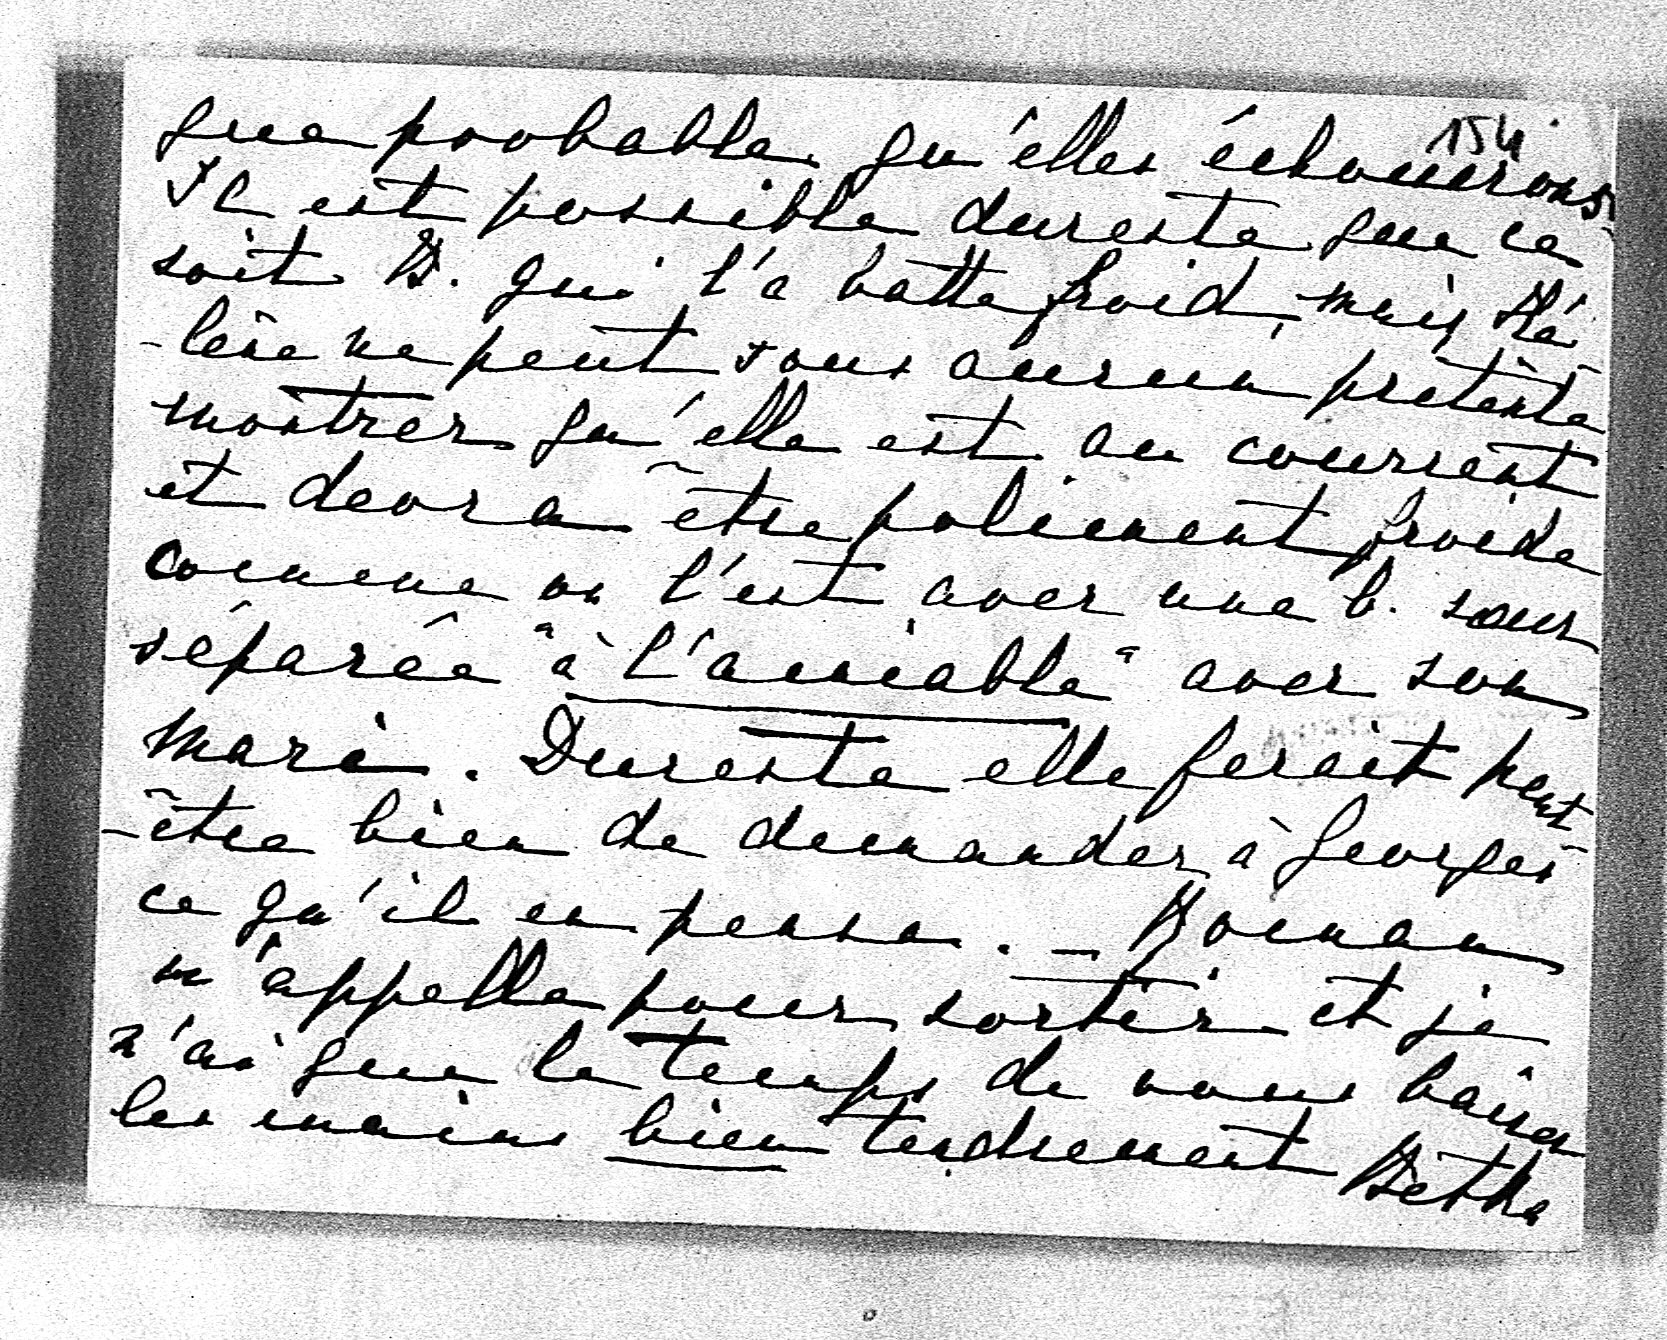 154
que probable qu'elles échouerons.
Il est possible dureste que ce
soit B. qui l'a batte froid, mais Hé
-lène ne peut sous aucun prétexte
montrer qu'elle est au courrent
et devra être poliement froide
comme on l'est avec une b. sœur
séparée "à l'amiable" avec son
mari. Dureste elle ferait peut
-être bien de demander à Georges
ce qu'il en pense. —
m'appelle pour sortir et je
n'ai que le temps de vous baiser
les mains bien tendrement